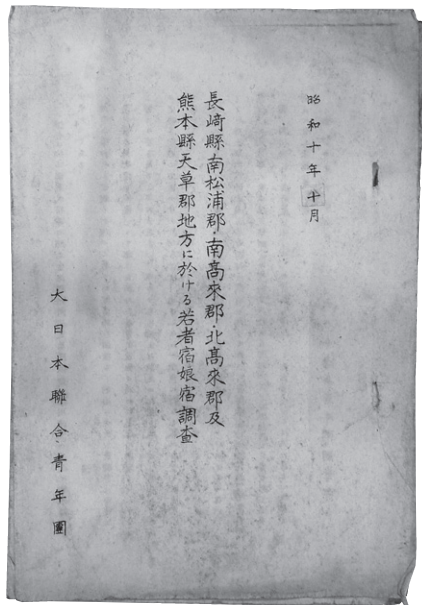 昭和十年十月
長崎縣南松浦郡・南髙來郡・北髙來郡及
熊本縣天草郡地方に於ける若者宿娘宿調査
大日本聯合青年團